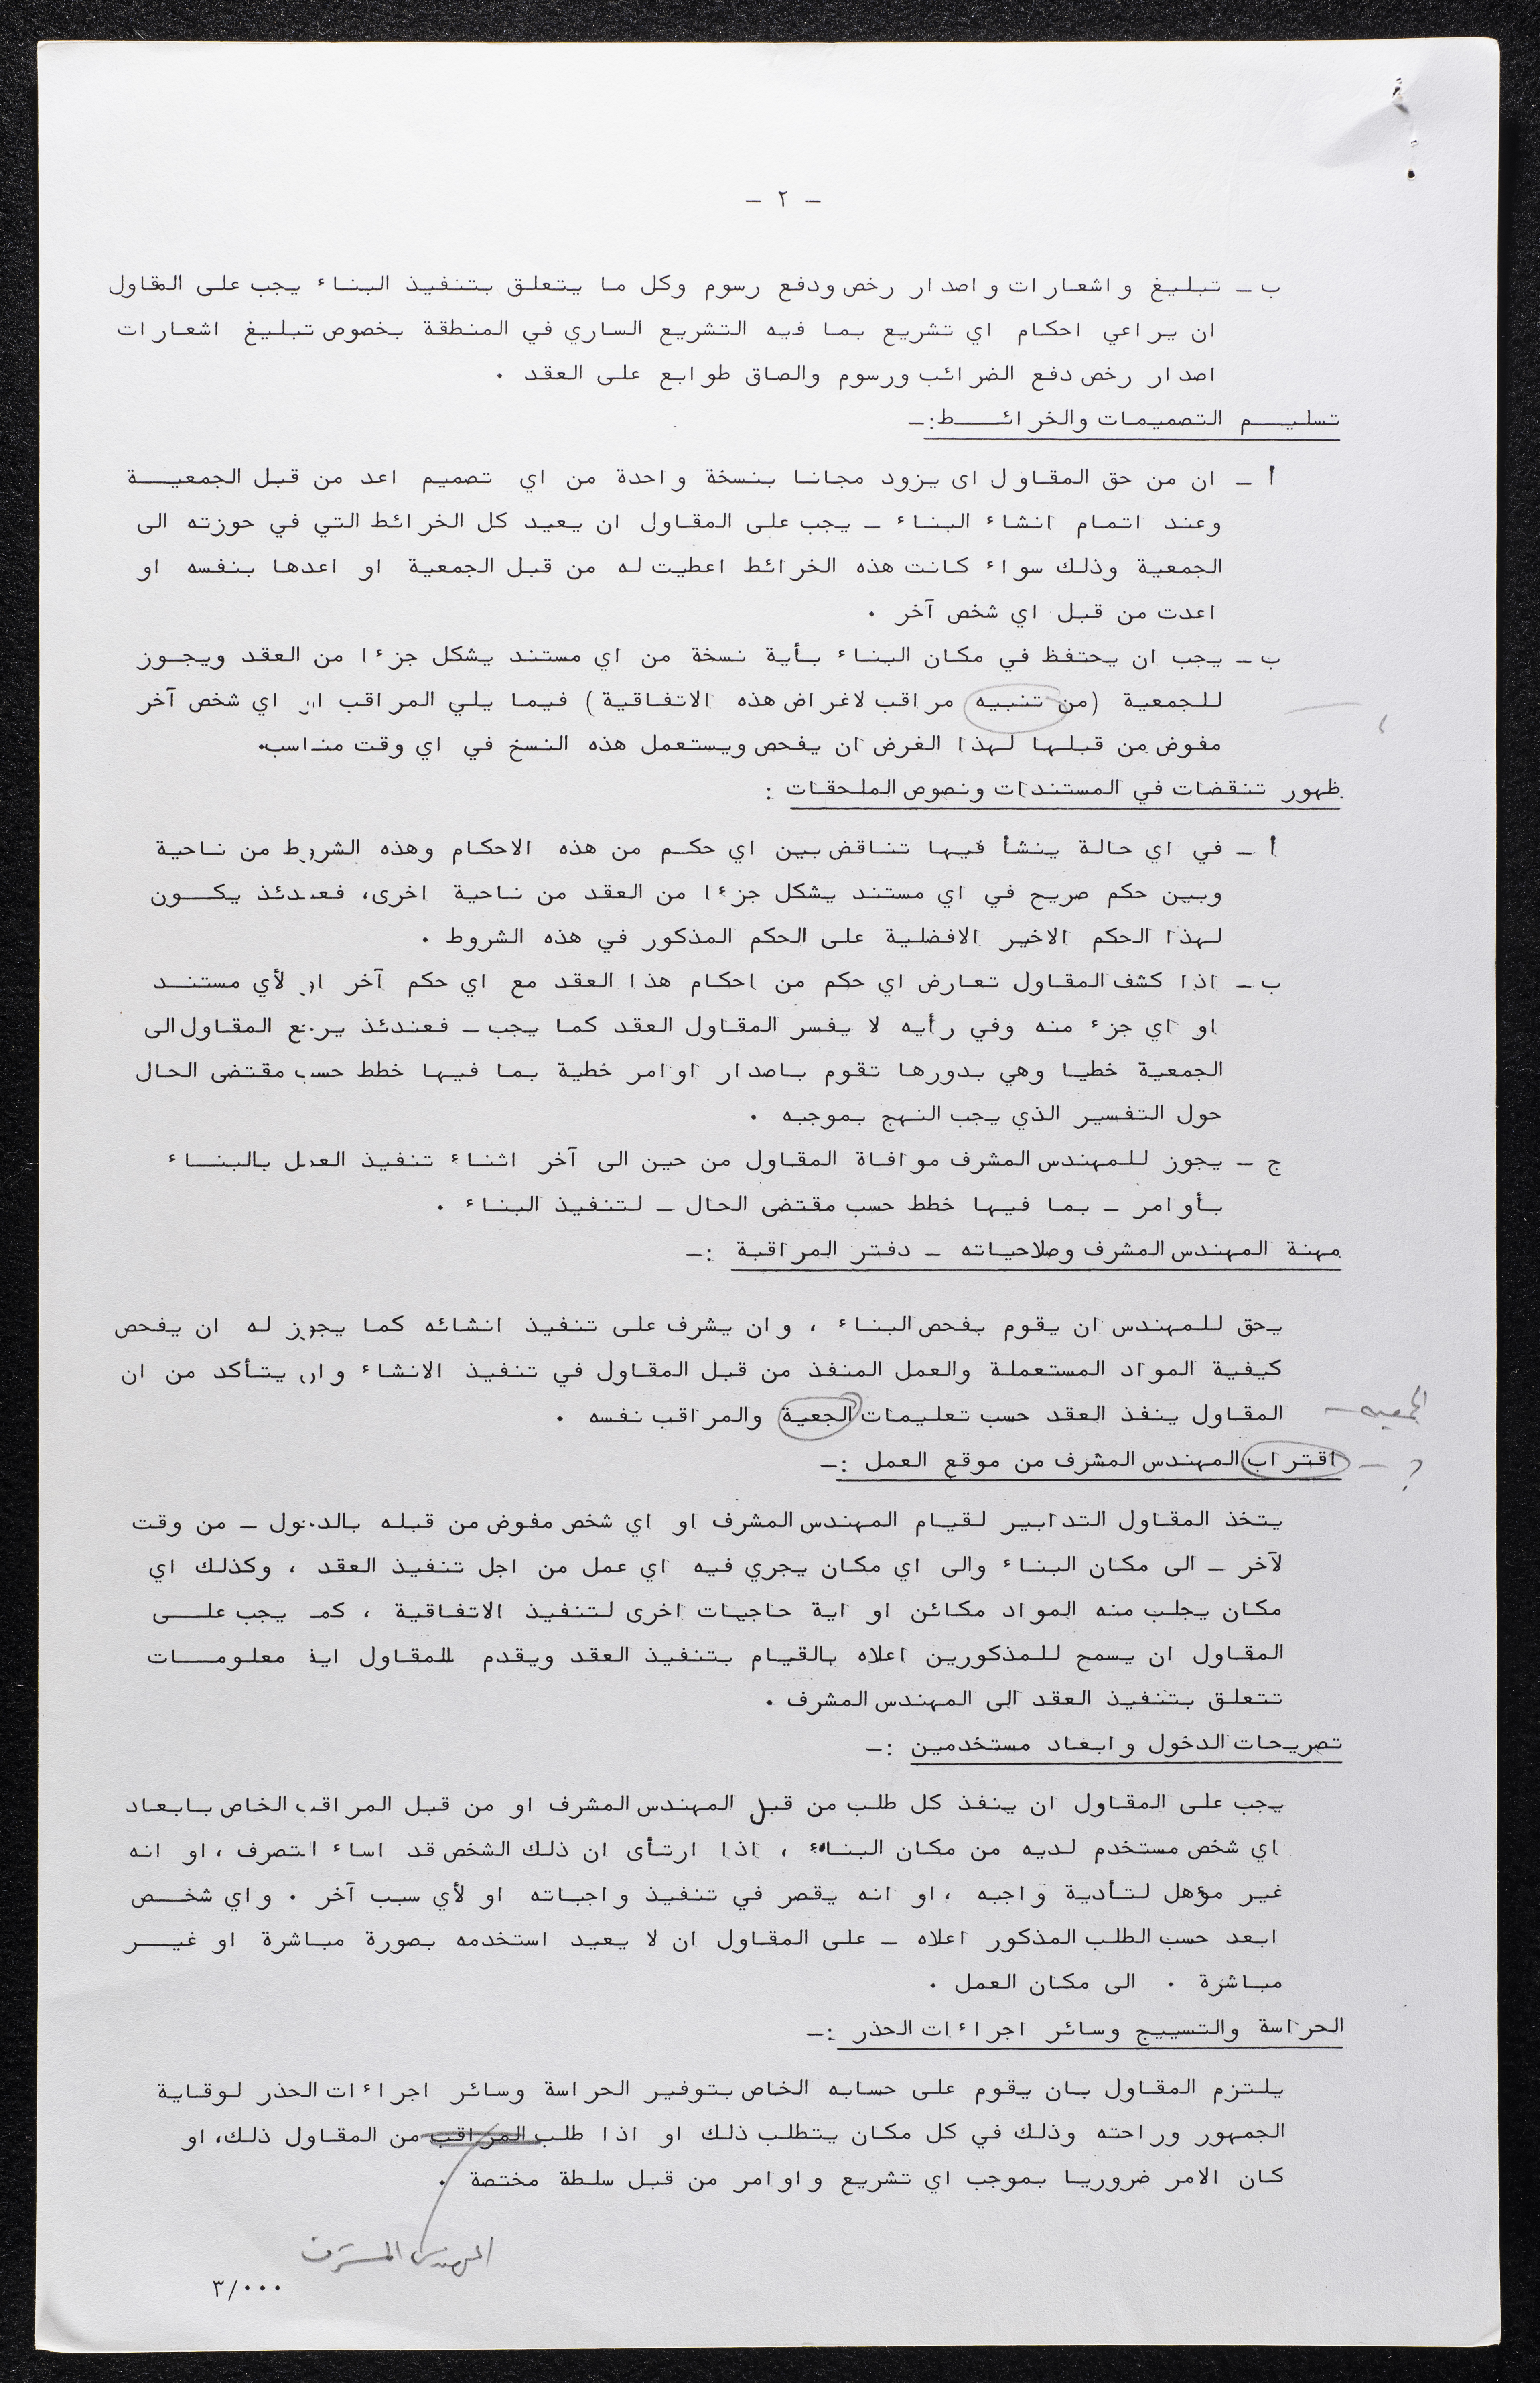 - ٢ -
ب - تبليغ واشعارات واصدار رخص ودفع رسوم وكل ما يتعلق بتنفيذ البناء يجب على المقاول
ان يراعي احكام اي تشريع بما فيه التشريع الساري في المنطقة بخصوص تبليغ اشعارات
اصدار رخص دفع الضرائب ورسوم والصاق طوابع على العقد .
تسليم التصميمات والخرائط :-
أ - ان من حق المقاول اى يزود مجانا بنسخة واحدة من اي تصميم اعد من قبل الجمعية
وعند اتمام انشاء البناء - يجب على المقاول ان يعيد كل الخرائط التي في حوزته الى
الجمعية وذلك سواء كانت هذه الخرائط اعطيت له من قبل الجمعية او اعدها بنفسه او
اعدت من قبل اي شخص آخر .
ب - يجب ان يحتفظ في مكان البناء بأية نسخة من اي مستند يشكل جزءا من العقد ويجوز
للجمعية (من تنبيه مراقب لاغراض هذه الاتفاقية) فيما يلي المراقب او اي شخص آخر
مفوض من قبلها لهذا الغرض ان يفحص ويستعمل هذه النسخ في اي وقت مناسب.
ظهور تنقضات في المستندات ونصوص الملحقات :
أ - في اي حالة ينشأ فيها تناقض بين اي حكم من هذه الاحكام وهذه الشروط من ناحية
وبين حكم صريح في اي مستند يشكل جزءا من العقد من ناحية اخرى، فعندئذ يكون
لهذا الحكم الاخير الافضلية على الحكم المذكور في هذه الشروط .
ب - اذا كشف المقاول تعارض اي حكم من احكام هذا العقد مع اي حكم آخر او لأي مستند
او اي جزء منه وفي رأيه لا يفسر المقاول العقد كما يجب - فعندئذ يرجع المقاول الى
الجمعية خطيا وهي بدورها تقوم باصدار اوامر خطية بما فيها خطط حسب مقتضى الحال
حول التفسير الذي يجب النهج بموجبه .
ج - يجوز للمهندس المشرف موافاة المقاول من حين الى آخر اثناء تنفيذ العمل بالبناء
بأوامر - بما فيها خطط حسب مقتضى الحال - لتنفيذ البناء .
مهنة المهندس المشرف وصلاحياته - دفتر المراقبة :-
يحق للمهندس ان يقوم بفحص البناء ، وان يشرف على تنفيذ انشائه كما يجوز له ان يفحص
كيفية المواد المستعملة والعمل المنفذ من قبل المقاول في تنفيذ الانشاء وان يتأكد من ان
المقاول ينفذ العقد حسب تعليمات الجعية والمراقب نفسه .
الجمعيه -
اقتراب المهندس المشرف من موقع العمل :-
؟ -
يتخذ المقاول التدابير لقيام المهندس المشرف او اي شخص مفوض من قبله بالدخول - من وقت
لآخر - الى مكان البناء والى اي مكان يجري فيه اي عمل من اجل تنفيذ العقد ، وكذلك اي
مكان يجلب منه المواد مكائن او اية حاجيات اخرى لتنفيذ الاتفاقية ، كما يجب على
المقاول ان يسمح للمذكورين اعلاه بالقيام بتنفيذ العقد ويقدم للمقاول اية معلومات
تتعلق بتنفيذ العقد الى المهندس المشرف .
تصريحات الدخول وابعاد مستخدمين :-
يجب على المقاول ان ينفذ كل طلب من قبل المهندس المشرف او من قبل المراقب الخاص بابعاد
اي شخص مستخدم لديه من مكان البناء ، اذا ارتأى ان ذلك الشخص قد اساء التصرف ، او انه
غير مؤهل لتأدية واجبه ، او انه يقصر في تنفيذ واجباته او لأي سبب آخر . واي شخص
ابعد حسب الطلب المذكور اعلاه - على المقاول ان لا يعيد استخدمه بصورة مباشرة او غير
مباشرة . الى مكان العمل .
الحراسة والتسييج وسائر اجراءات الحذر :-
يلتزم المقاول بان يقوم على حسابه الخاص بتوفير الحراسة وسائر اجراءات الحذر لوقاية
الجمهور وراحته وذلك في كل مكان يتطلب ذلك او اذا طلب المراقب من المقاول ذلك، او
كان الامر ضروريا بموجب اي تشريع واوامر من قبل سلطة مختصة .
المهندس المشرف
٣/٠٠٠